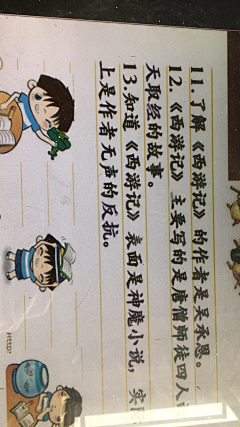 11.了解《西游记》的作者是吴承恩。
12.《西游记》主要写的是唐僧师徒四人
天取经的故事。
13.知道《西游记》表面是神魔小说，实
上是作者无声的反抗。
Http: